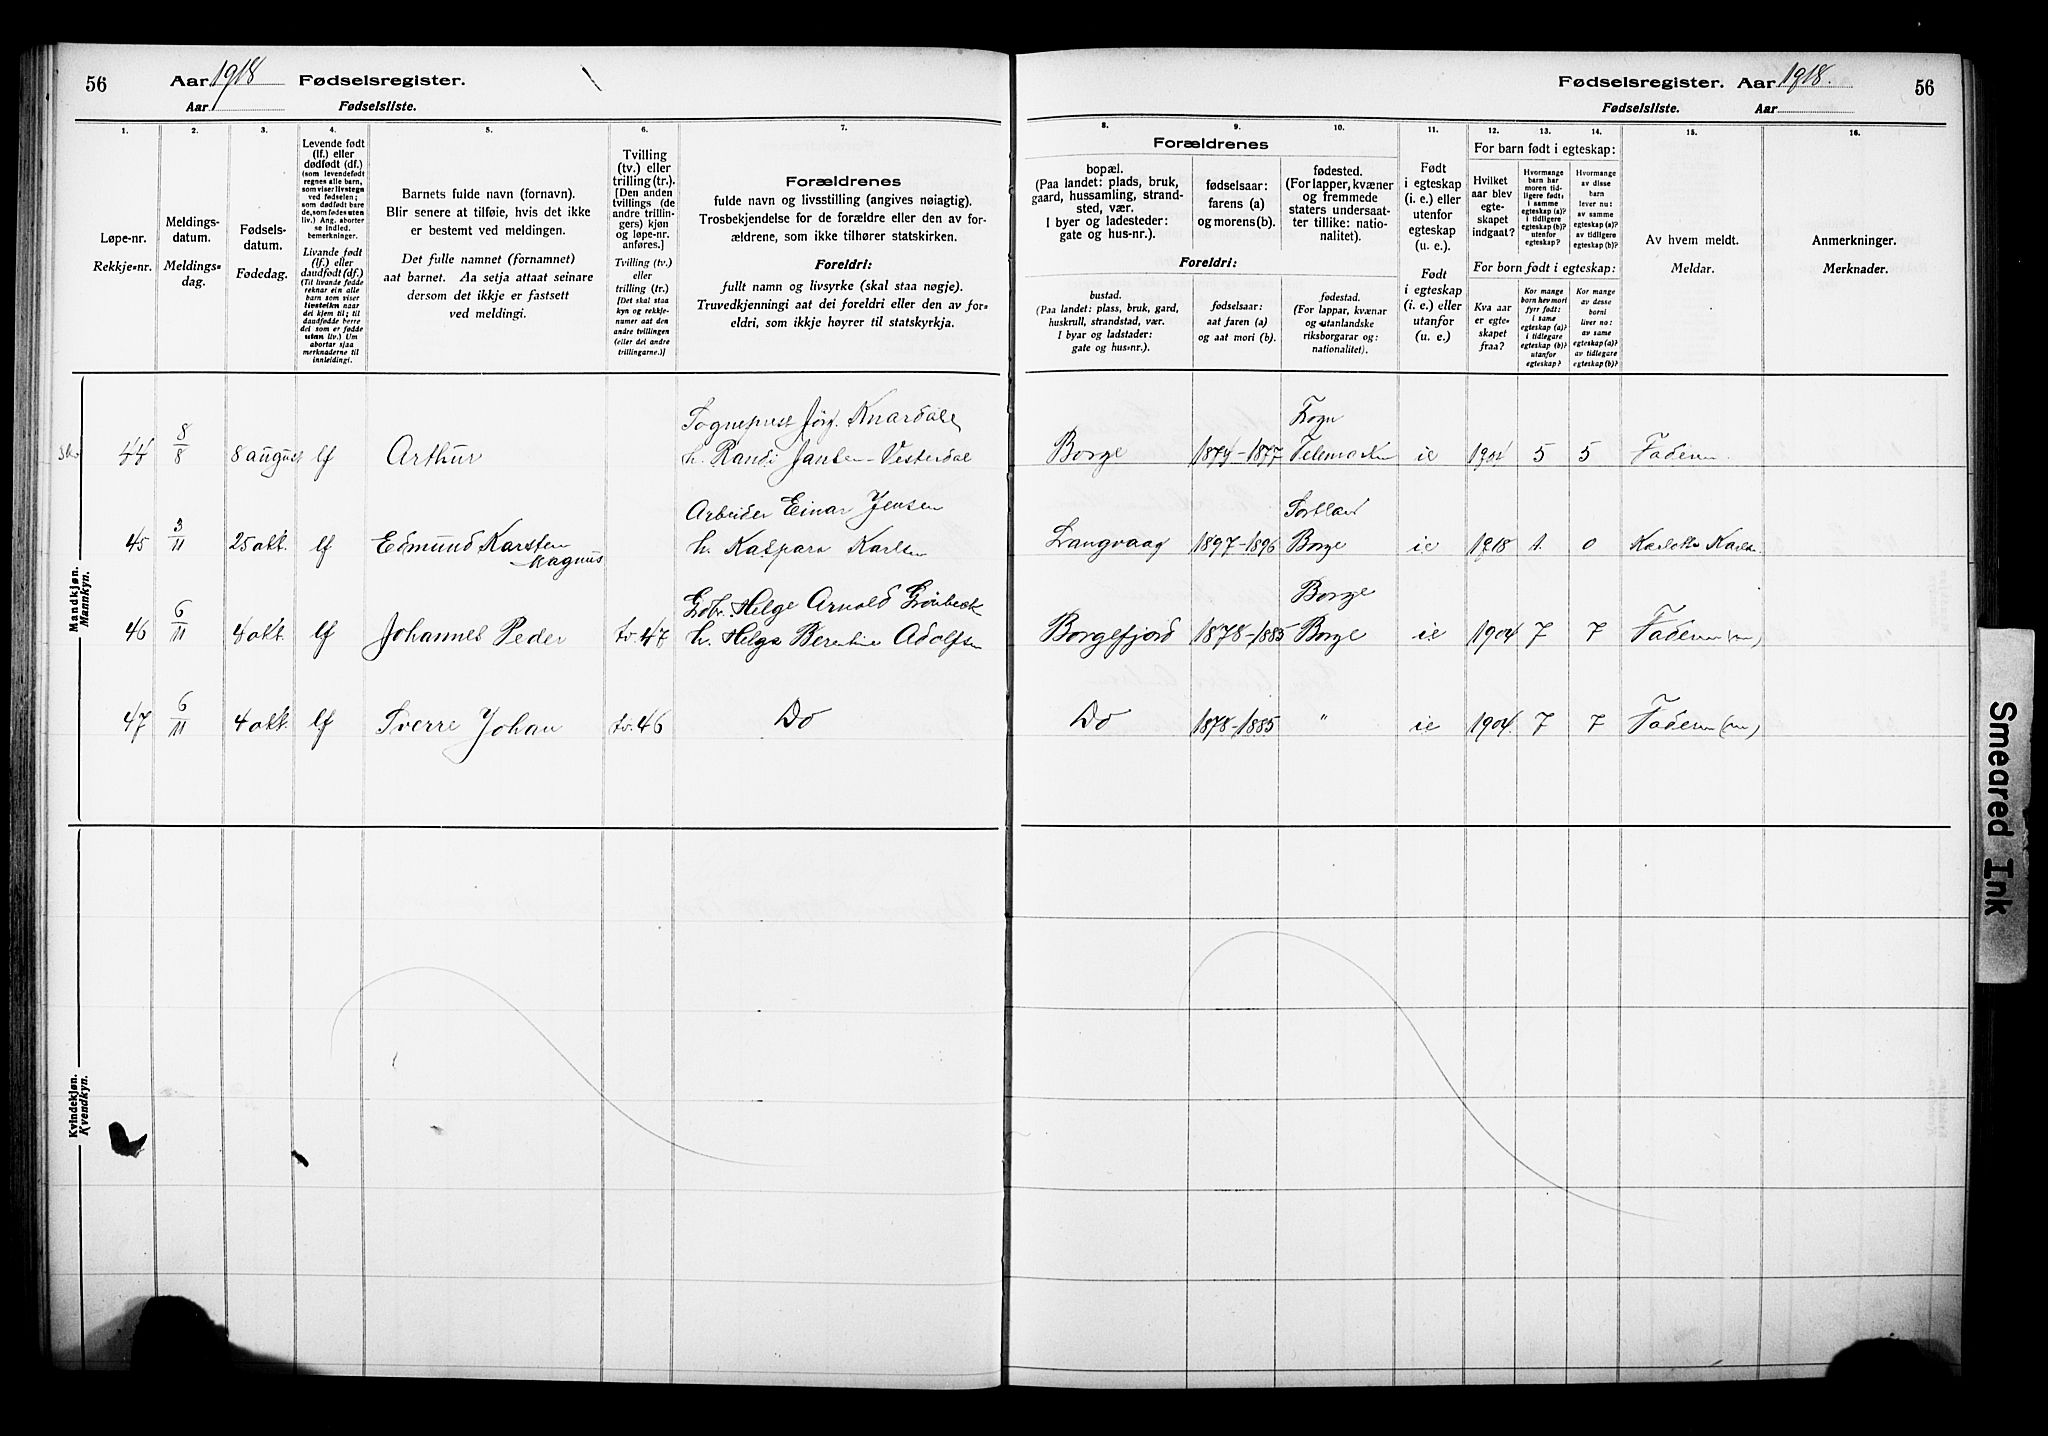 56 Aar 1918 Fødselsregister.
Aar Fødselsliste.
Fødselsregister. Aar 1918. 56
Fødselsliste. Aar
1. 2. 3. 4. 5. 6. 7.
Løpe-nr.
Rekkje-nr.
Meldings-
datum.
Meldings-
dag.
Fødsels-
datum.
Fødedag.
Levende født
(lf.) eller
dødfødt (df.)
(som levendefødt
regnes alle barn,
som viser livstegn
ved fødselen;
som dødfødt bare
de, som fødes uten
liv.) Ang. aborter
se indled.
bemerkninger.
Livande født
(lf.) eller
daudfødt (df.)
(Til livande fødde
reknar ein alle
barn som viser
livsteikn naar
dei kjem til; til
daudfødde berre
dei som er fødde
utan liv.) Um
abortar sjaa
merknaderne til
innleidingi.
Barnets fulde navn (fornavn).
Blir senere at tilføie, hvis det ikke
er bestemt ved meldingen.
Det fulle namnet (fornamnet)
aat barnet. Aa setja attaat seinare
dersom det ikkje er fastsett
ved meldingi.
Tvilling
(tv.) eller
trilling (tr.).
[Den anden
tvillings (de
andre trillin-
gers) kjøn
og løpe-nr.
anføres.]
Tvilling (tv.)
eller
trilling (tr.)
[Det skal staa
kyn og rekkje-
numer aat den
andre tvillingen
(eller dei andre
trillingarne.)]
Forældrenes
fulde navn og livsstilling (angives nøiagtig).
Trosbekjendelse for de forældre eller den av for-
ældrene, som ikke tilhører statskirken.
Foreldri:
fullt namn og livsyrke (skal staa nøgje).
Truvedkjenningi aat dei foreldri eller den av for-
eldri, som ikkje høyrer til statskyrkja.
8. 9. 10. 11. 12. 13. 14. 15. 16.
Forældrenes
bopæl.
(Paa landet: plads, bruk,
gaard, hussamling, strand-
sted, vær.
I byer og ladesteder:
gate og hus-nr.).
fødselsaar:
farens (a)
og morens (b).
fødested.
(For lapper, kvæner
og fremmede
staters undersaat-
ter tillike: natio-
nalitet).
Foreldri:
bustad.
(Paa landet: plass, bruk, gard,
huskrull, strandstad, vær.
I byar og ladstader:
gate og hus-nr.).
fødselsaar:
aat faren (a)
og aat mori (b).
fødestad.
(For lappar, kvænar
og utanlandske
riksborgarar og:
nationalitet).
Født
i egteskap
(i. e.) eller
utenfor
egteskap
(u. e.).
Født
i egteskap
(i. e.) eller
utanfor
(u. e.)
For barn født i egteskap:
Hvilket
aar blev
egte-
skapet
indgaat?
Hvormange
barn har
moren tid-
ligere født:
i samme
egteskap (a)?
i tidligere
egteskap (b)?
utenfor
egteskap?
Hvormange
av disse
barn
lever nu:
av samme
egteskap (a)?
av tidligere
egteskap (b)?
For born født i egteskap:
Kva aar
er egte-
skapet
fraa?
Kor mange
born hev mori
fyrr født:
i same
egteskap (a)?
i tidlegare
egteskap (b)?
utanfor
egteskap?
Kor mange
av desse
borni
liver no:
av same
egteskap (a)?
av tidlegare
egteskap (b)?
Av hvem meldt.
Meldar.
Anmerkninger.
Merknader.
Mandkjøn.
Mannkyn.
44 8/8 8 august lf Arthur
Knardale
h. Randi Jansen-Vesterdal
Borge 1874-1877 Telemarken ie 1901 5 5 Faderen.
45 3/11 25 okt. lf Edmund Karsten
Magnus
Arbeider Einar Jensen
h. Kaspara Karlsen
Langvaag 1897-1896 Sortland
Borge ie 1918 1. 0
46 6/11 4 okt. lf Johannes Peder tv. 47
Gdbr. Helge Arnold Grönbeck
h. Helga Berentine Adolfsen
Borgefjord 1878-1885 Borge
Borge ie 1904 7 7 Faderen (m)
47 6/11 4 okt. lf Sverre Johan tv. 46 Do
Do 1878-1885 " ie 1904. 7 7 Faderen (m)
Kvindekjøn.
Kvendkyn.
Smeared Ink